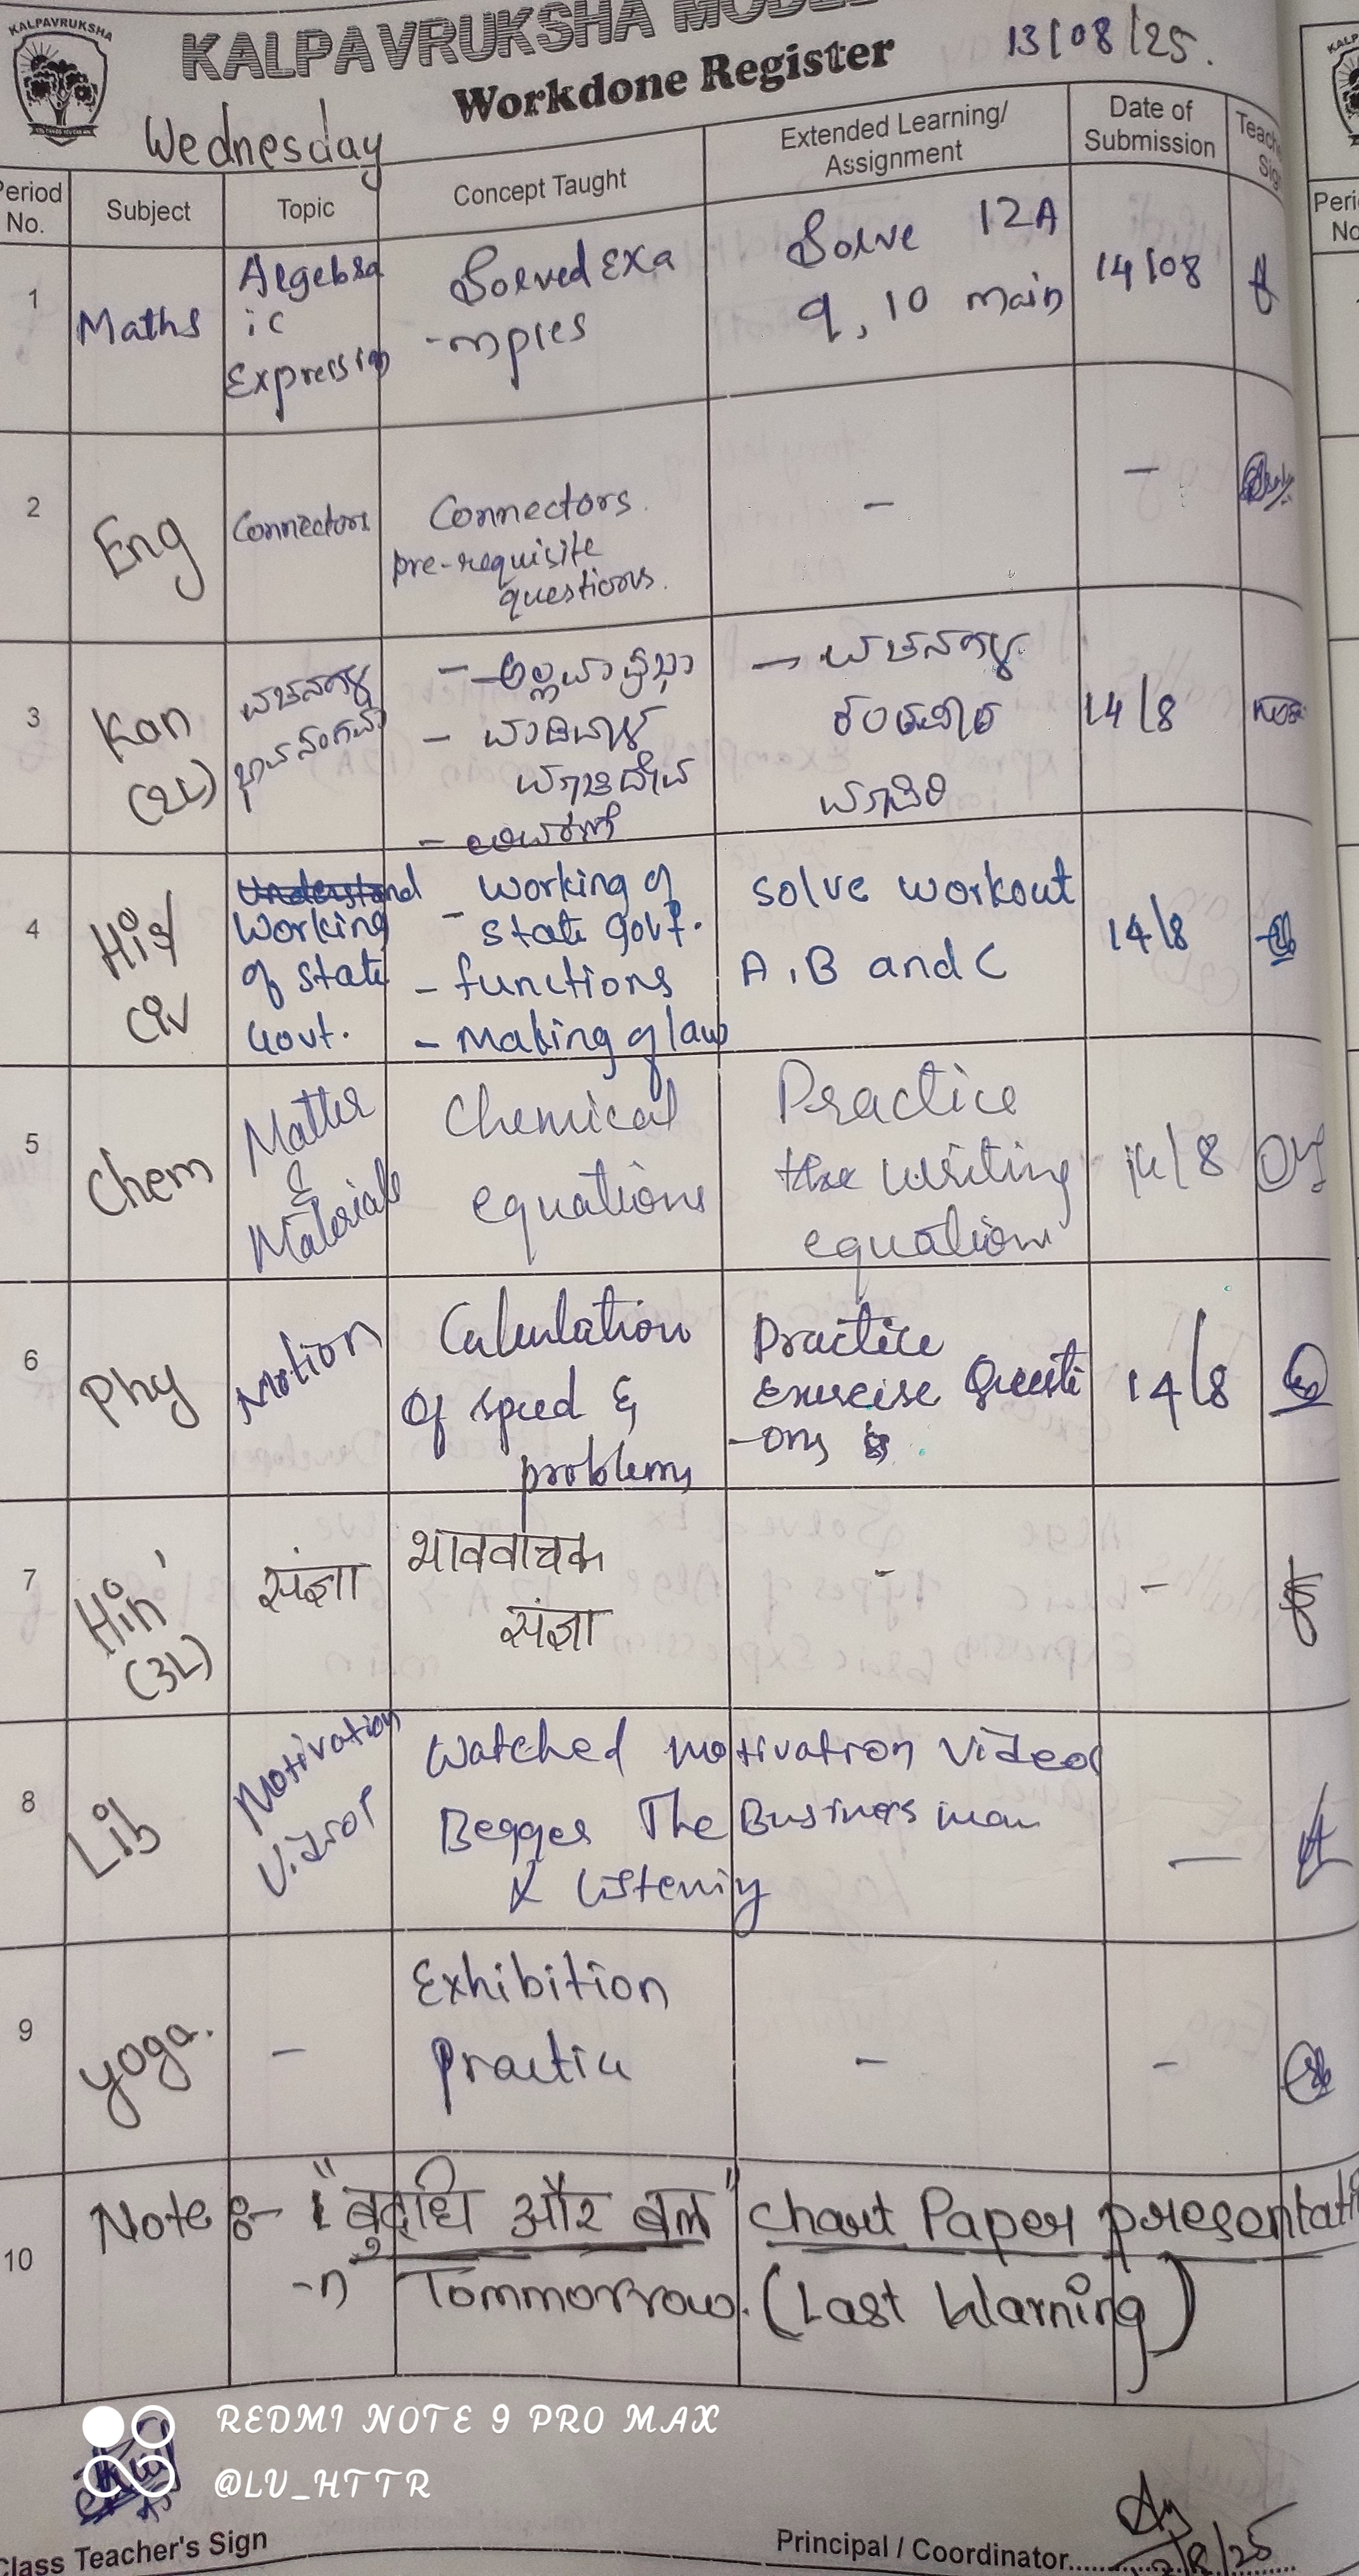 KALPAVRUKSHA
KALPAVRUKSHA
13/08/25.
Workdone Register
Wednesday
Period No.
Subject
Topic
Concept Taught
Extended Learning/
Assignment
Date of
Submission
1
Maths
Algebra
ic
Expression
Solved Exa
-mples
Solve 12A
9, 10 main
14/08
2
Eng
Connectors
Connectors.
pre-requisite
questions.
-
-
3
Kan
(2L)
ವಚನಗಳು
- ಅಲ್ಲಮಪ್ರಭು
- ವಚನಗಳು
14/8
4
His/
Civ
Working
of state
Govt.
- working of
state govt.
- functions
- Making of law
solve workout
A, B and C
14/8
5
Chem
Matter
&
Materials
Chemical
equations
Practice
the writing
equation
14/8
6
Phy
Motion
Calculation
of speed &
problems
Practice
Exercise Questi
-ons
14/8
7
Hin
(3L)
संज्ञा
भाववाचक
संज्ञा
-
-
8
Lib
Motivation
Watched motivation video
Begger The Businessman
& Listening
—
9
yoga.
-
Exhibition
practice
-
-
10
Note :- "बुद्धि और बल" chart Paper presentati
-n Tommorrow. (Last Warning)
REDMI NOTE 9 PRO MAX
@LV_HTTR
Class Teacher's Sign
Principal / Coordinator